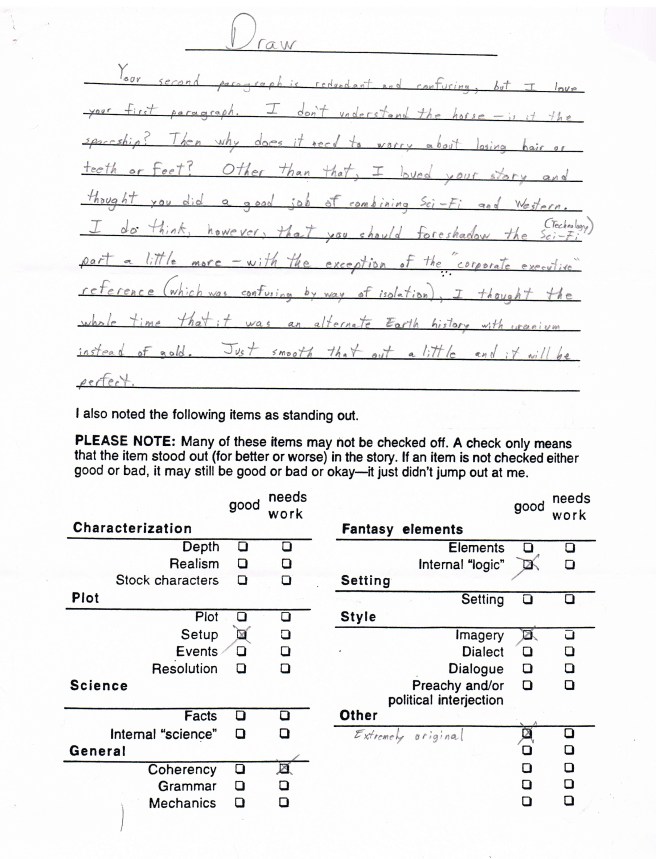 Draw
Your second paragraph is redundant and confusing, but I love
your first paragraph. I don't understand the horse – is it the
spaceship? Then why does it need to worry about losing hair or
teeth or feet? Other than that, I loved your story and
thought you did a good job of combining Sci-Fi and Western.
I do think, however, that you should foreshadow the Sci-Fi (Technology)
part a little more – with the exception of the "corporate executive"
reference (which was confusing by way of isolation), I thought the
whole time that it was an alternate Earth history with uranium
instead of gold. Just smooth that out a little and it will be
perfect.
I also noted the following items as standing out.
PLEASE NOTE: Many of these items may not be checked off. A check only means
that the item stood out (for better or worse) in the story. If an item is not checked either
good or bad, it may still be good or bad or okay—it just didn't jump out at me.
good needs work
Characterization
Depth
Realism
Stock characters
Plot
Plot
Setup
Events
Resolution
Science
Facts
Internal "science"
General
Coherency
Grammar
Mechanics
good needs work
Fantasy elements
Elements
Internal "logic"
Setting
Setting
Style
Imagery
Dialect
Dialogue
Preachy and/or
political interjection
Other
Extremely original